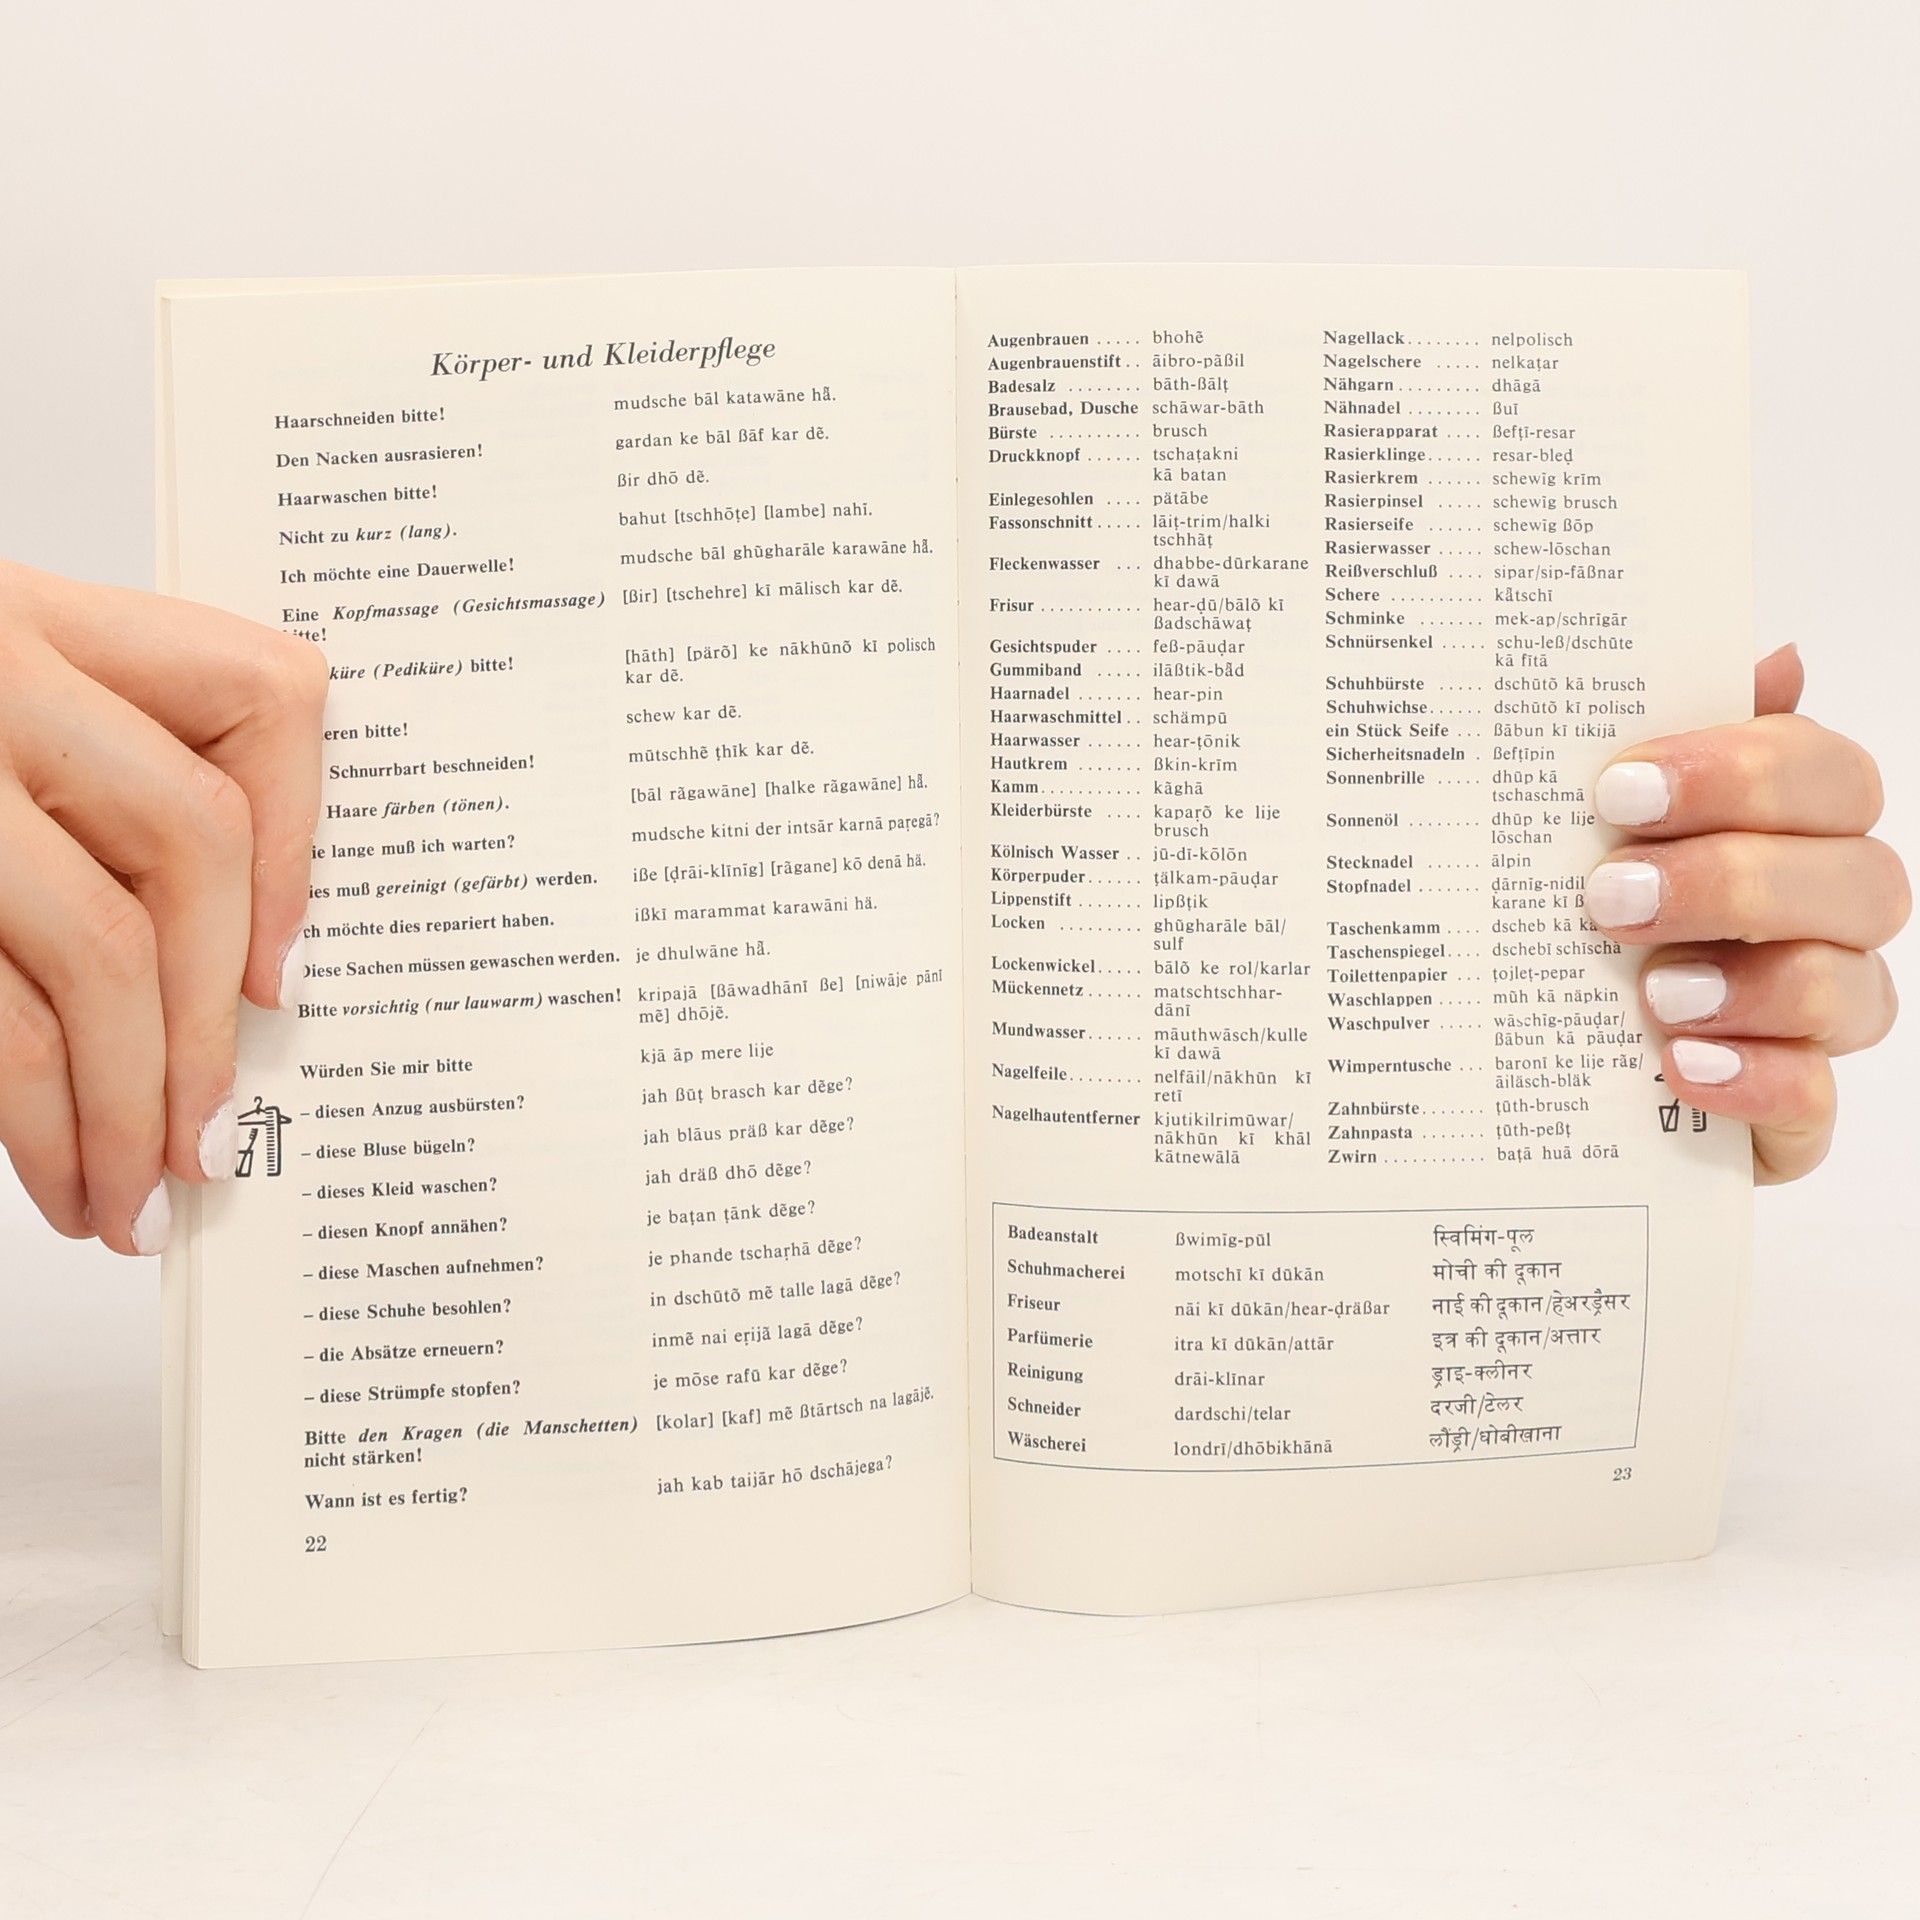 Körper- und Kleiderpflege
Haarschneiden bitte! mudsche bāl katawāne hä̃.
Den Nacken ausrasieren! gardan ke bāl ßāf kar dẽ.
Haarwaschen bitte! ßir dhō dẽ.
Nicht zu kurz (lang). bahut [tschhōṭe] [lambe] nahī̃.
Ich möchte eine Dauerwelle! mudsche bāl ghũgharāle karawāne hä̃.
Eine Kopfmassage (Gesichtsmassage) [ßir] [tschehre] kī mālisch kar dẽ.
bitte!
küre (Pediküre) bitte! [hāth] [pärõ] ke nākhūnõ kī polisch
kar dẽ.
eren bitte! schew kar dẽ.
Schnurrbart beschneiden! mūtschhẽ ṭhīk kar dẽ.
Haare färben (tönen). [bāl rãgawāne] [halke rãgawāne] hä̃.
ie lange muß ich warten? mudsche kitni der intsār karnā paṛegā?
ies muß gereinigt (gefärbt) werden. iße [ḍrāi-klīnīg] [rãgane] kō denā hä.
ch möchte dies repariert haben. ißkī marammat karawāni hä.
Diese Sachen müssen gewaschen werden. je dhulwāne hä̃.
Bitte vorsichtig (nur lauwarm) waschen! kripajā [ßāwadhānī ße] [niwāje pānī
mẽ] dhōjẽ.
Würden Sie mir bitte kjā āp mere lije
– diesen Anzug ausbürsten? jah ßūṭ brasch kar dẽge?
– diese Bluse bügeln? jah blāus präß kar dẽge?
– dieses Kleid waschen? jah dräß dhō dẽge?
– diesen Knopf annähen? je baṭan ṭānk dẽge?
– diese Maschen aufnehmen? je phande tschaṛhā dẽge?
– diese Schuhe besohlen? in dschūtõ mẽ talle lagā dẽge?
– die Absätze erneuern? inmẽ nai eṛijā̃ lagā dẽge?
– diese Strümpfe stopfen? je mōse rafū kar dẽge?
Bitte den Kragen (die Manschetten) [kolar] [kaf] mẽ ßtārtsch na lagājẽ.
nicht stärken!
Wann ist es fertig? jah kab taijār hō dschājega?
22
Augenbrauen ..... bhohẽ
Augenbrauenstift .. āibro-pāßil
Badesalz ........ bāth-ßālṭ
Brausebad, Dusche schāwar-bāth
Bürste .......... brusch
Druckknopf ...... tschaṭakni
kā batan
Einlegesohlen .... pätābe
Fassonschnitt ..... lāiṭ-trim/halki
tschhāṭ
Fleckenwasser ... dhabbe-dūrkarane
kī dawā
Frisur ........... hear-ḍū/bālõ kī
ßadschāwaṭ
Gesichtspuder .... feß-pāuḍar
Gummiband ..... ilāßtik-bä̃d
Haarnadel ....... hear-pin
Haarwaschmittel .. schämpū
Haarwasser ...... hear-ṭōnik
Hautkrem ....... ßkin-krīm
Kamm........... kãghā
Kleiderbürste .... kapaṛõ ke lije
brusch
Kölnisch Wasser .. jū-dī-kōlōn
Körperpuder...... ṭälkam-pāuḍar
Lippenstift ....... lipßṭik
Locken ......... ghũgharāle bāl/
sulf
Lockenwickel..... bālõ ke rol/karlar
Mückennetz ...... matschtschhar-
dānī
Mundwasser...... māuthwāsch/kulle
kī dawā
Nagelfeile........ nelfāil/nākhūn kī
retī
Nagelhautentferner kjutikilrimūwar/
nākhūn kī khāl
kātnewālā
Nagellack........ nelpolisch
Nagelschere ..... nelkaṭar
Nähgarn ......... dhāgā
Nähnadel ........ ßuī
Rasierapparat .... ßefṭī-resar
Rasierklinge...... resar-bleḍ
Rasierkrem ...... schewīg krīm
Rasierpinsel ..... schewīg brusch
Rasierseife ...... schewīg ßōp
Rasierwasser ..... schew-lōschan
Reißverschluß .... sipar/sip-fāßnar
Schere .......... kä̃tschī
Schminke ....... mek-ap/schrīgār
Schnürsenkel ..... schu-leß/dschūte
kā fītā
Schuhbürste ..... dschūtõ kā brusch
Schuhwichse...... dschūtõ kī polisch
ein Stück Seife ... ßābun kī tikijā
Sicherheitsnadeln . ßefṭipin
Sonnenbrille ..... dhūp kā
tschaschmā
Sonnenöl ........ dhūp ke lije
lōschan
Stecknadel ...... ālpin
Stopfnadel ....... ḍārnīg-nidil
karane kī ß
Taschenkamm .... dscheb kā
Taschenspiegel.... dschebī schīschā
Toilettenpapier ... ṭojleṭ-pepar
Waschlappen ..... mũh kā näpkin
Waschpulver ..... wāschīg-pāuḍar/
ßābun kā pāuḍar
Wimperntusche ... baronī ke lije rãg/
āiläsch-bläk
Zahnbürste....... ṭūth-brusch
Zahnpasta ....... ṭūth-peßṭ
Zwirn ........... baṭā huā dōrā
Badeanstalt ßwimīg-pūl स्विमिंग-पूल
Schuhmacherei motschī kī dūkān मोची की दूकान
Friseur nāi kī dūkān/hear-ḍräßar नाई की दूकान/हेअरड्रैसर
Parfümerie itra kī dūkān/attār इत्र की दूकान/अत्तार
Reinigung drāi-klīnar ड्राइ-क्लीनर
Schneider dardschi/telar दरजी/टेलर
Wäscherei londrī/dhōbikhānā लौंड्री/धोबीखाना
23